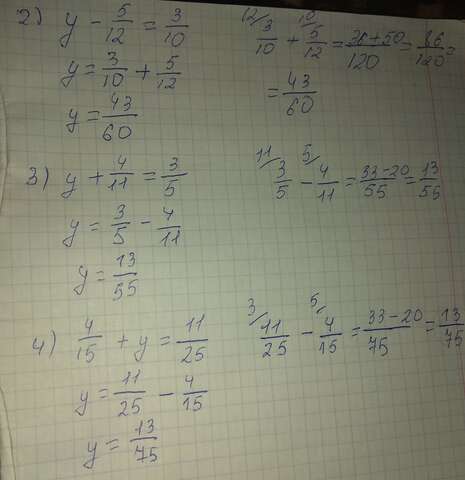 2) y - 5/12 = 3/10
y = 3/10 + 5/12
y = 43/60
12/ 3/10 + 10/ 5/12 = 36+50/120 = 86/120 =
= 43/60
3) y + 4/11 = 3/5
y = 3/5 - 4/11
y = 13/55
11/ 3/5 - 5/ 4/11 = 33-20/55 = 13/55
4) 4/15 + y = 11/25
y = 11/25 - 4/15
y = 13/75
3/ 11/25 - 5/ 4/15 = 33-20/75 = 13/75